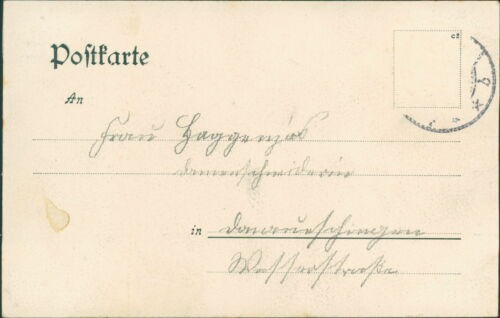 Postkarte
An
Frau Haggenjos
Damenschneiderin
in Donaueschingen
Wasserstraße